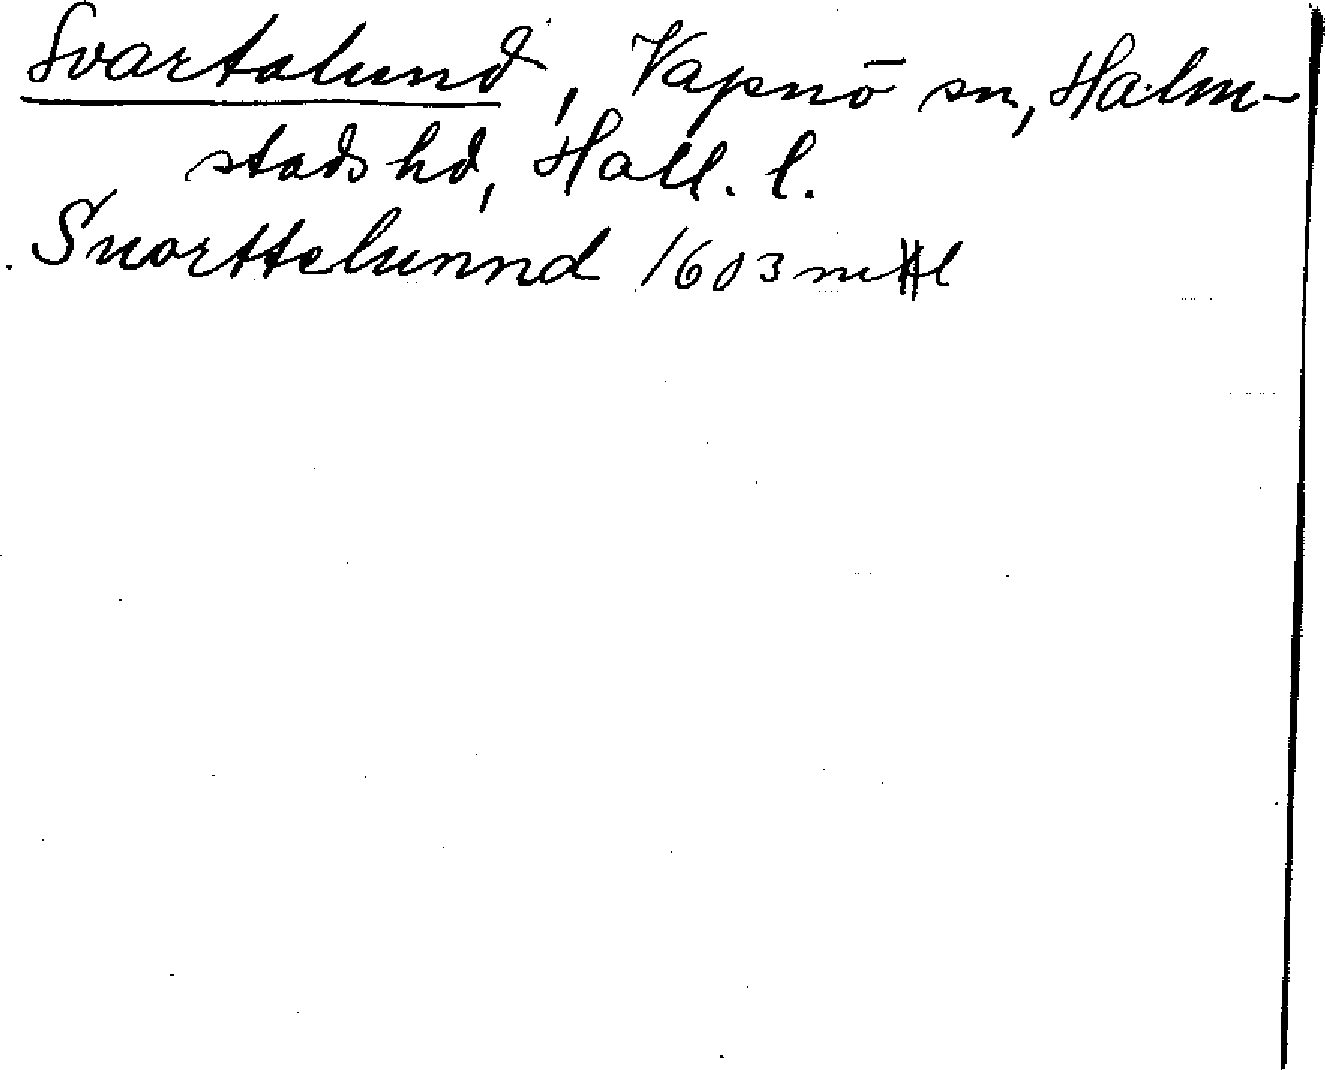 Svartalund, Vapnö sn, Halm-
stads hd, Hall. l.
Suorttelunnd 1603 mHl